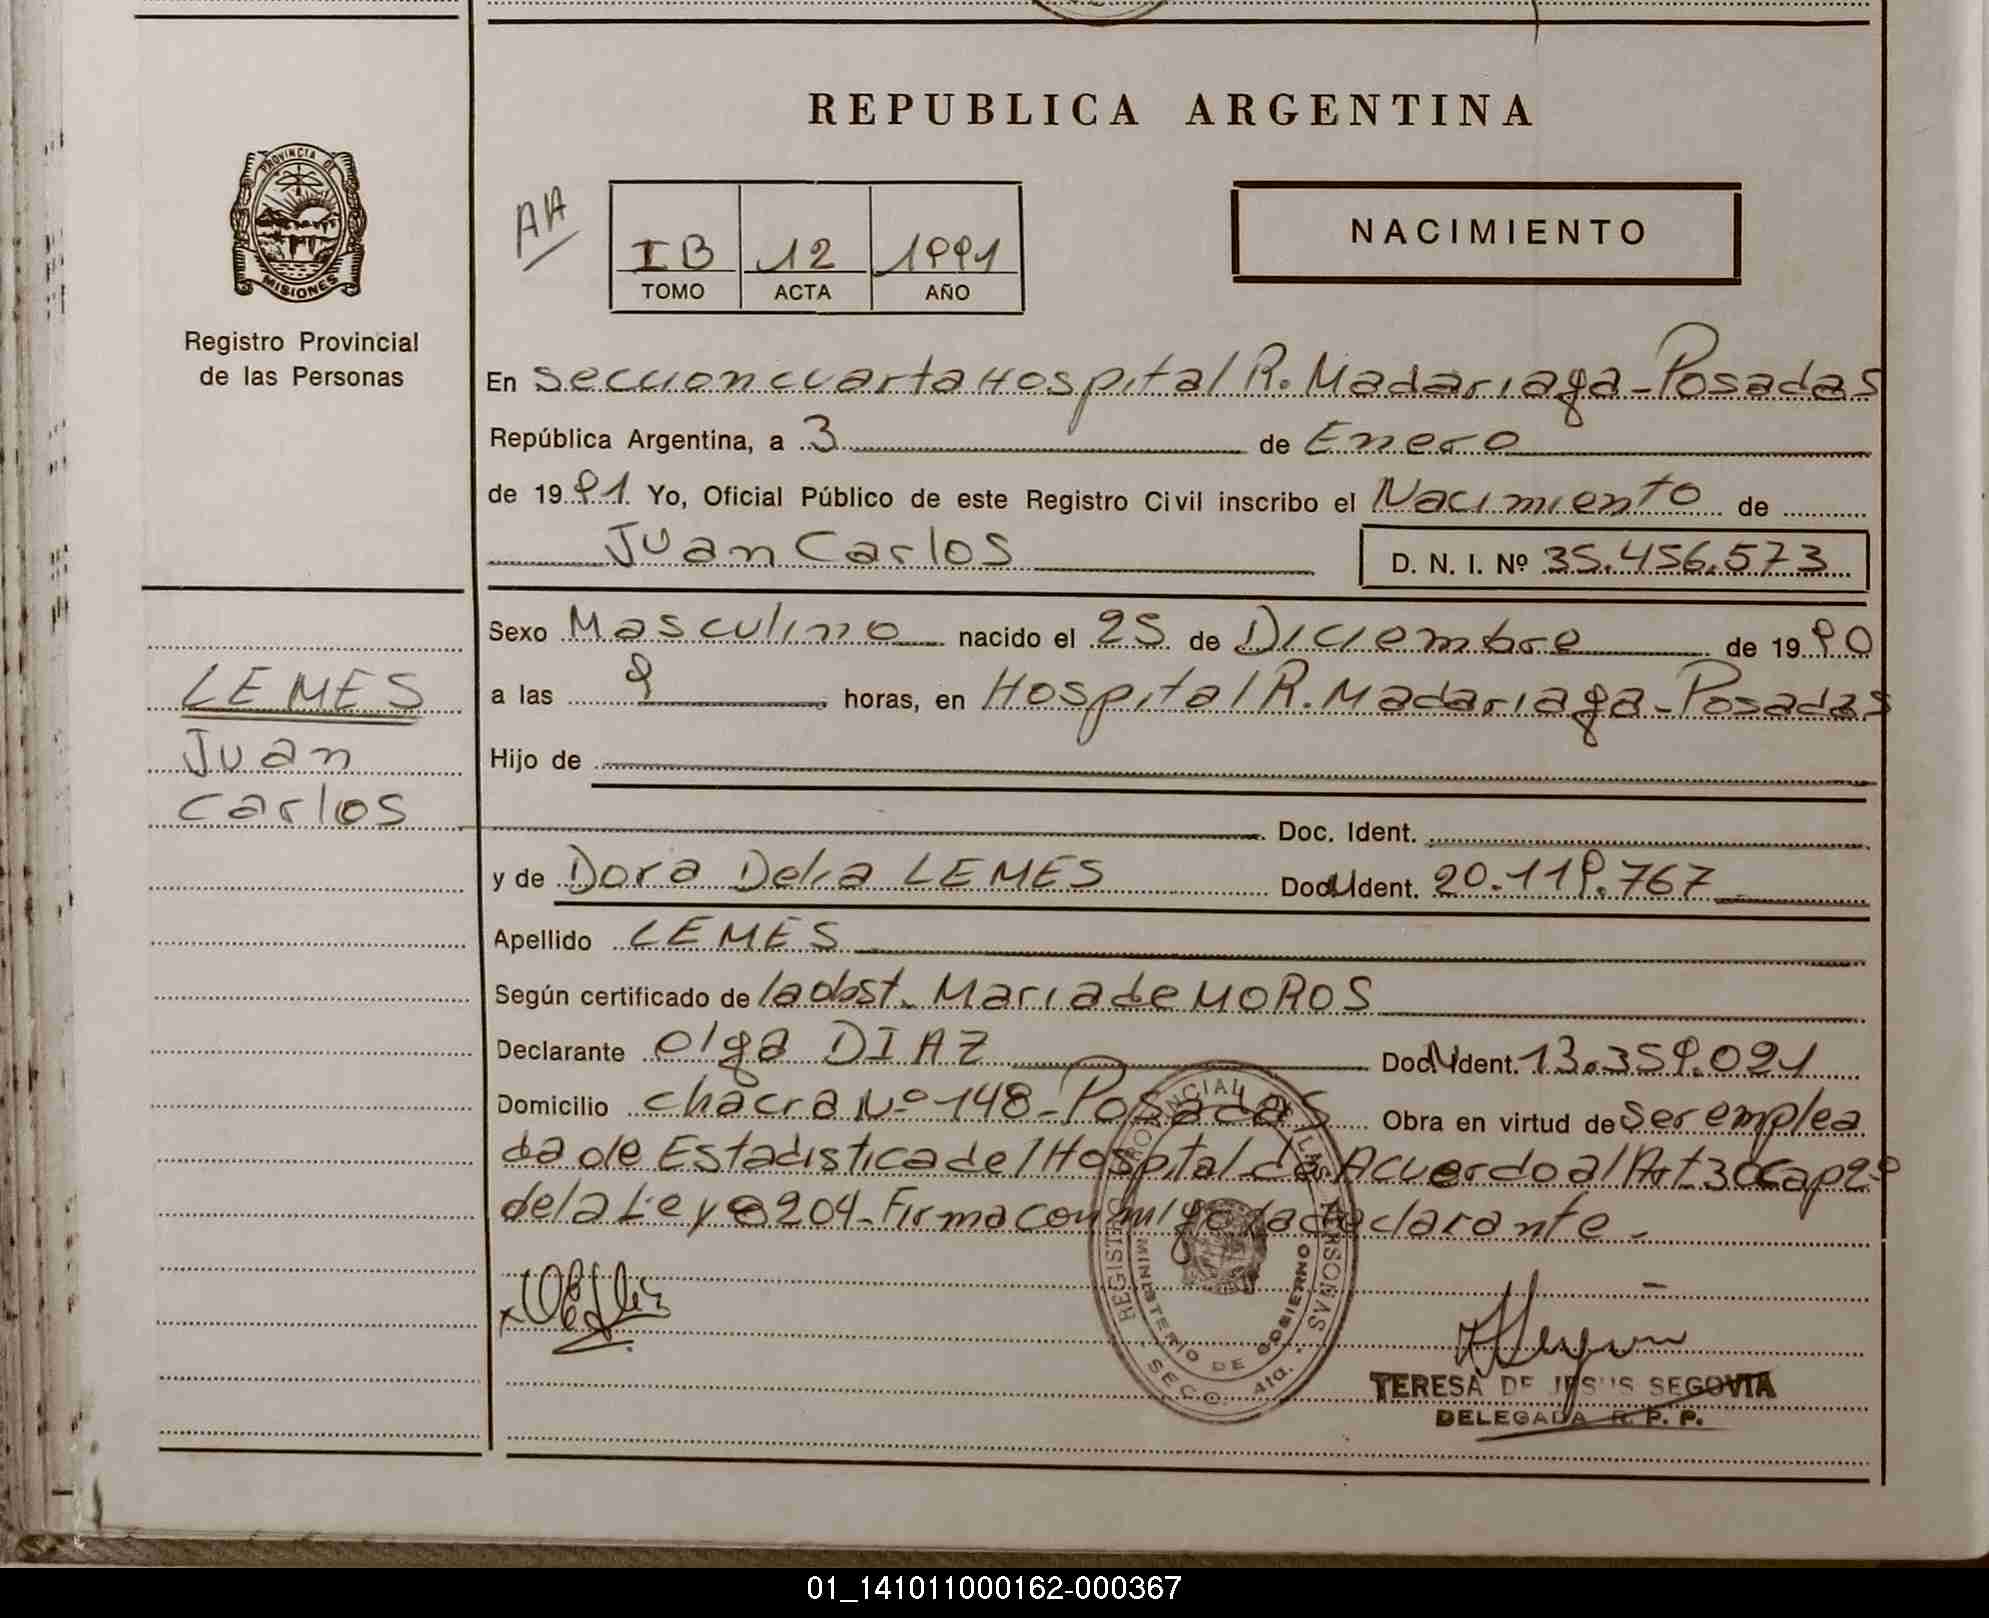 REPUBLICA ARGENTINA
PROVINCIA DE
MISIONES
Registro Provincial
de las Personas
AA
IB 12 1991
TOMO ACTA AÑO
NACIMIENTO
En Seccion cuarta Hospital R. Madariaga - Posadas
República Argentina, a 3 de Enero
de 1991 Yo, Oficial Público de este Registro Civil inscribo el Nacimiento de
Juan Carlos D. N. I. Nº 35.456.573
Sexo Masculino nacido el 25 de Diciembre de 1990
LEMES
Juan
Carlos
a las 9 horas, en Hospital R. Madariaga - Posadas
Hijo de
Doc. Ident.
y de Dora Delia LEMES Doc. Ident. 20.119.767
Apellido LEMES
Según certificado de la obst. Maria de MOROS
Declarante Olga DIAZ Doc. Ident. 13.359.091
Domicilio chacra Nº 148 - Posadas Obra en virtud de ser emplea
da de Estadistica del Hospital de Acuerdo al Art 30 cap 2º
de la Ley 8204 - Firma conmigo la declarante.
REGISTRO PROVINCIAL DE LAS PERSONAS
MINISTERIO DE GOBIERNO
SECC. 4ta.
TERESA DE JESUS SEGOVIA
DELEGADA R. P. P.
01_141011000162-000367